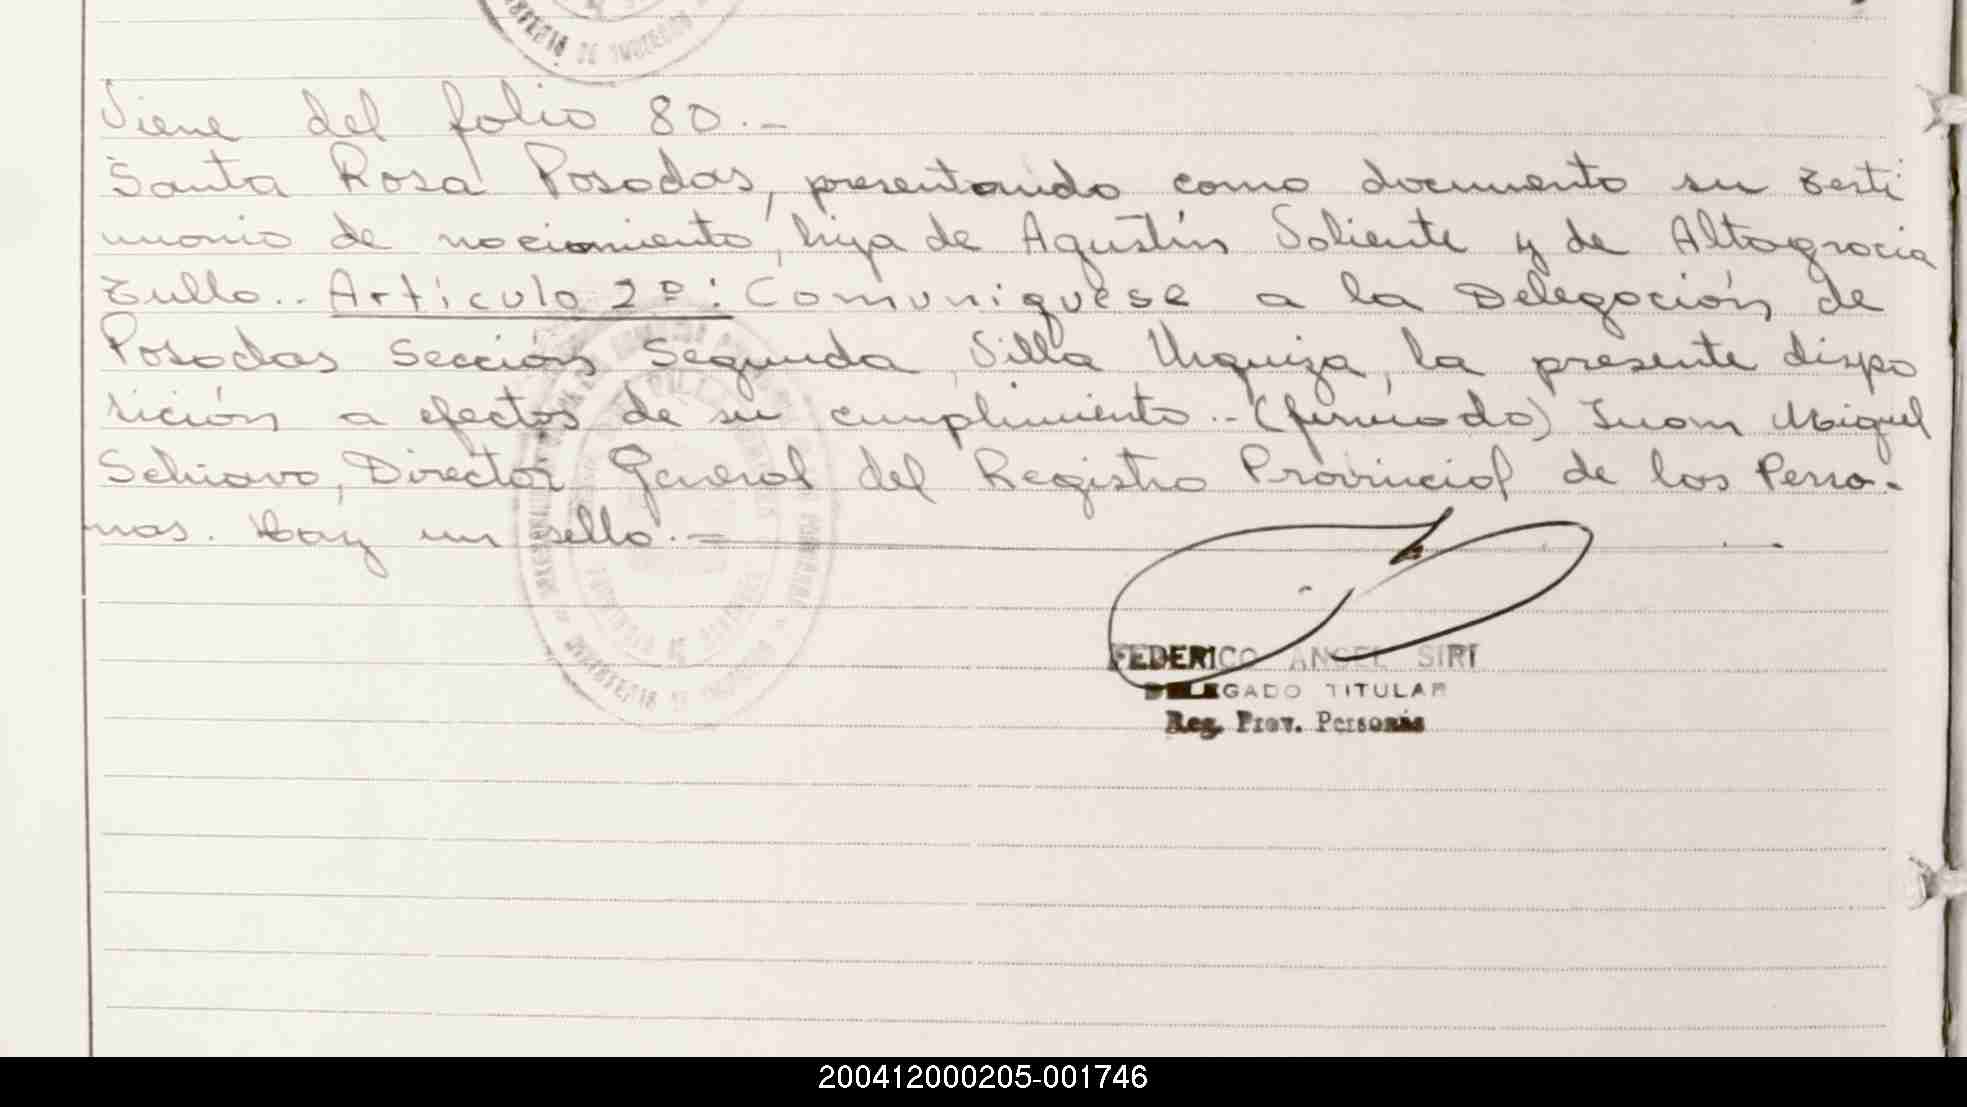 Viene del folio 80.-
Santa Rosa Posadas, presentando como documento su testi
monio de nacimiento, hija de Agustín Soliente y de Altagracia
Tullo.- Artículo 2º: Comuniquese a la Delegación de
Posadas Sección Segunda, Villa Urquiza, la presente dispo
sición a efectos de su cumplimiento.- (firmado) Juan Miguel
Schiavo, Director General del Registro Provincial de los Perso-
nas. Hay un sello.-
FEDERICO ANGEL SIRI
DELEGADO TITULAR
Reg. Prov. Personas
200412000205-001746